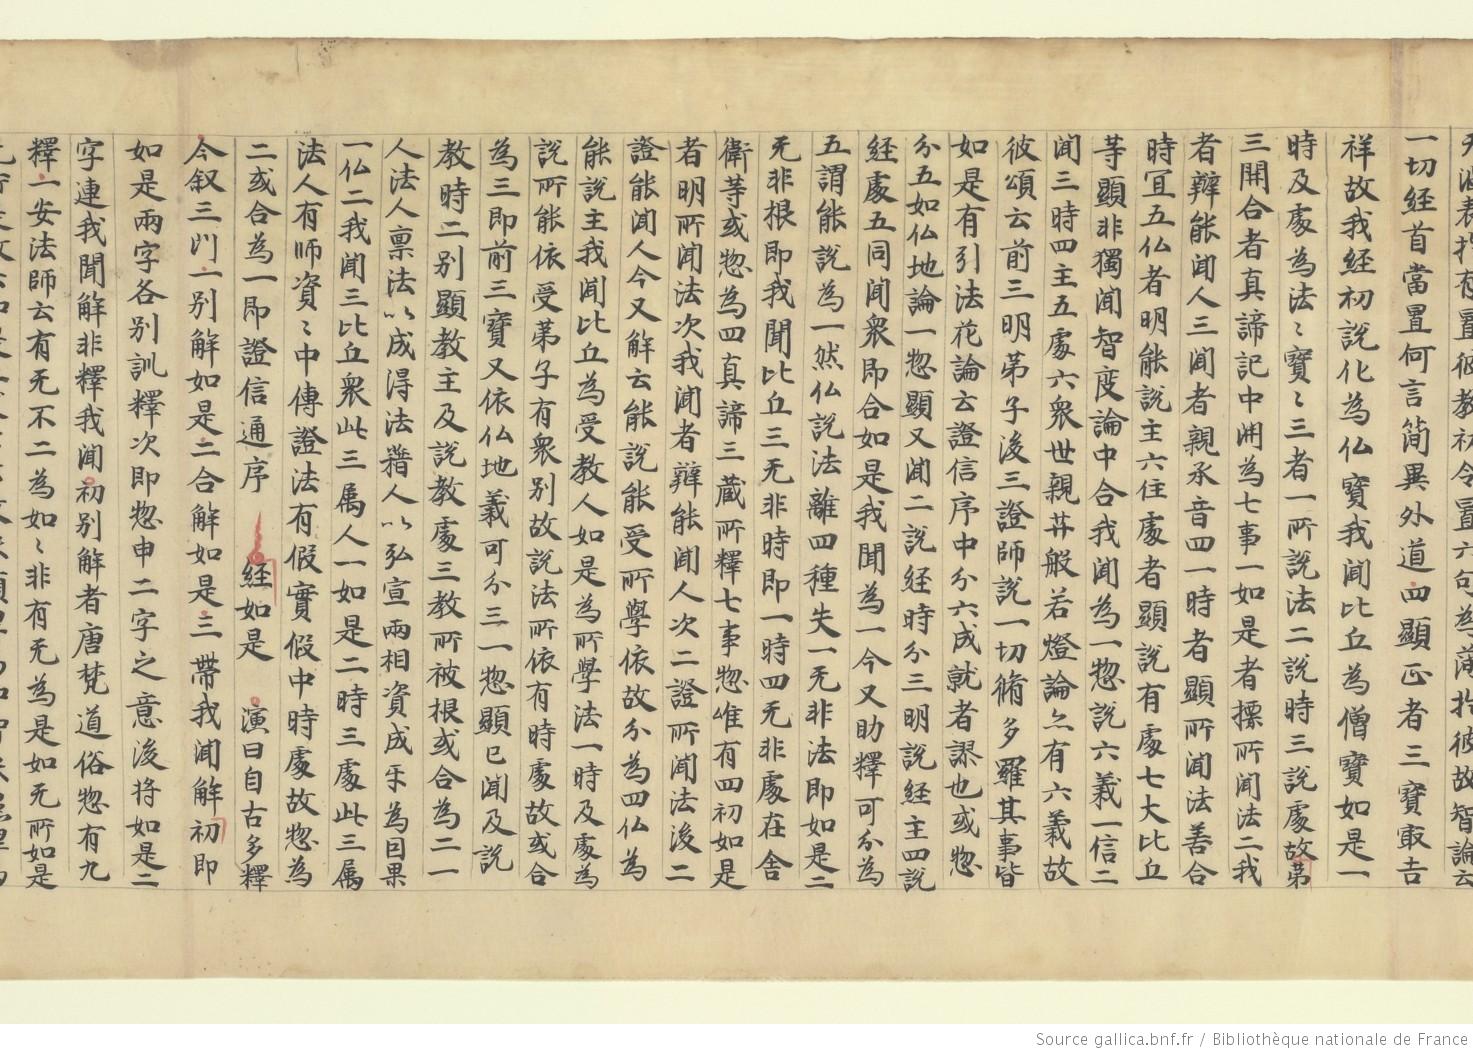 一切経首當置何言簡異外道四顯正者三寶寂吉
祥故我経初說化為仏寶我聞比丘為僧寶如是一
時及處為法〻寶〻三者一所說法二說時三說處故第
三開合者真諦記中開為七事一如是者摽所聞法二我
者辯能聞人三聞者親承音四一時者顯所聞法善合
時冝五仏者明能說主六住處者顯說有處七大比丘
等顯非獨聞智度論中合我聞為一惣說六義一信二
聞三時四主五處六衆世親并般若燈論亦有六義故
彼頌云前三明弟子後三證師說一切脩多羅其事皆
如是有引法花論云證信序中分六成就者謬也或惣
分五如仏地論一惣顯又聞二說経時分三明說経主四說
経處五同聞衆即合如是我聞為一今又助釋可分為
五謂能說為一然仏說法離四種失一无非法即如是二
无非根即我聞比丘三无非時即一時四无非處在舍
衛等或惣為四真諦三藏所釋七事惣唯有四初如是
者明所聞法次我聞者辯能聞人次二證所聞法後二
證能聞人今又解云能說能受所學依故分為四仏為
能說主我聞比丘為受教人如是為所學法一時及處為
說所能依受弟子有衆別故說法所依有時處故或合
為三即前三寶又依仏地義可分三一惣顯已聞及說
教時二別顯教主及說教處三教所被根或合為二一
人法人禀法以成得法藉人以弘宣兩相資成乎為因果
一仏二我聞三比丘衆此三属人一如是二時三處此三属
法人有师資〻中傳證法有假實假中時處故惣為
二或合為一即證信通序 経如是 演曰自古多釋
今叙三門一別解如是二合解如是三帶我聞解初即
如是兩字各別訓釋次即惣申二字之意後将如是二
字連我聞解非釋我聞初別解者唐梵道俗惣有九
釋一安法師云有无不二為如〻非有无為是如无所如是